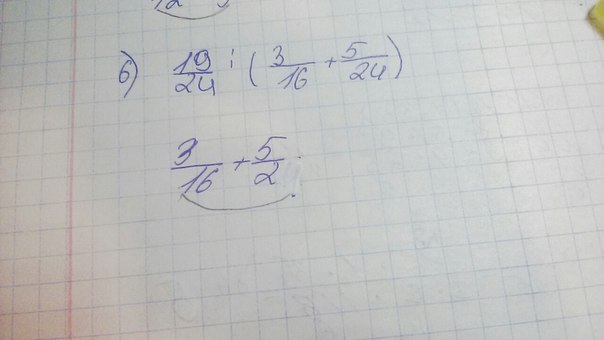 12
б) 19/24 : (3/16 + 5/24)
3/16 + 5/2